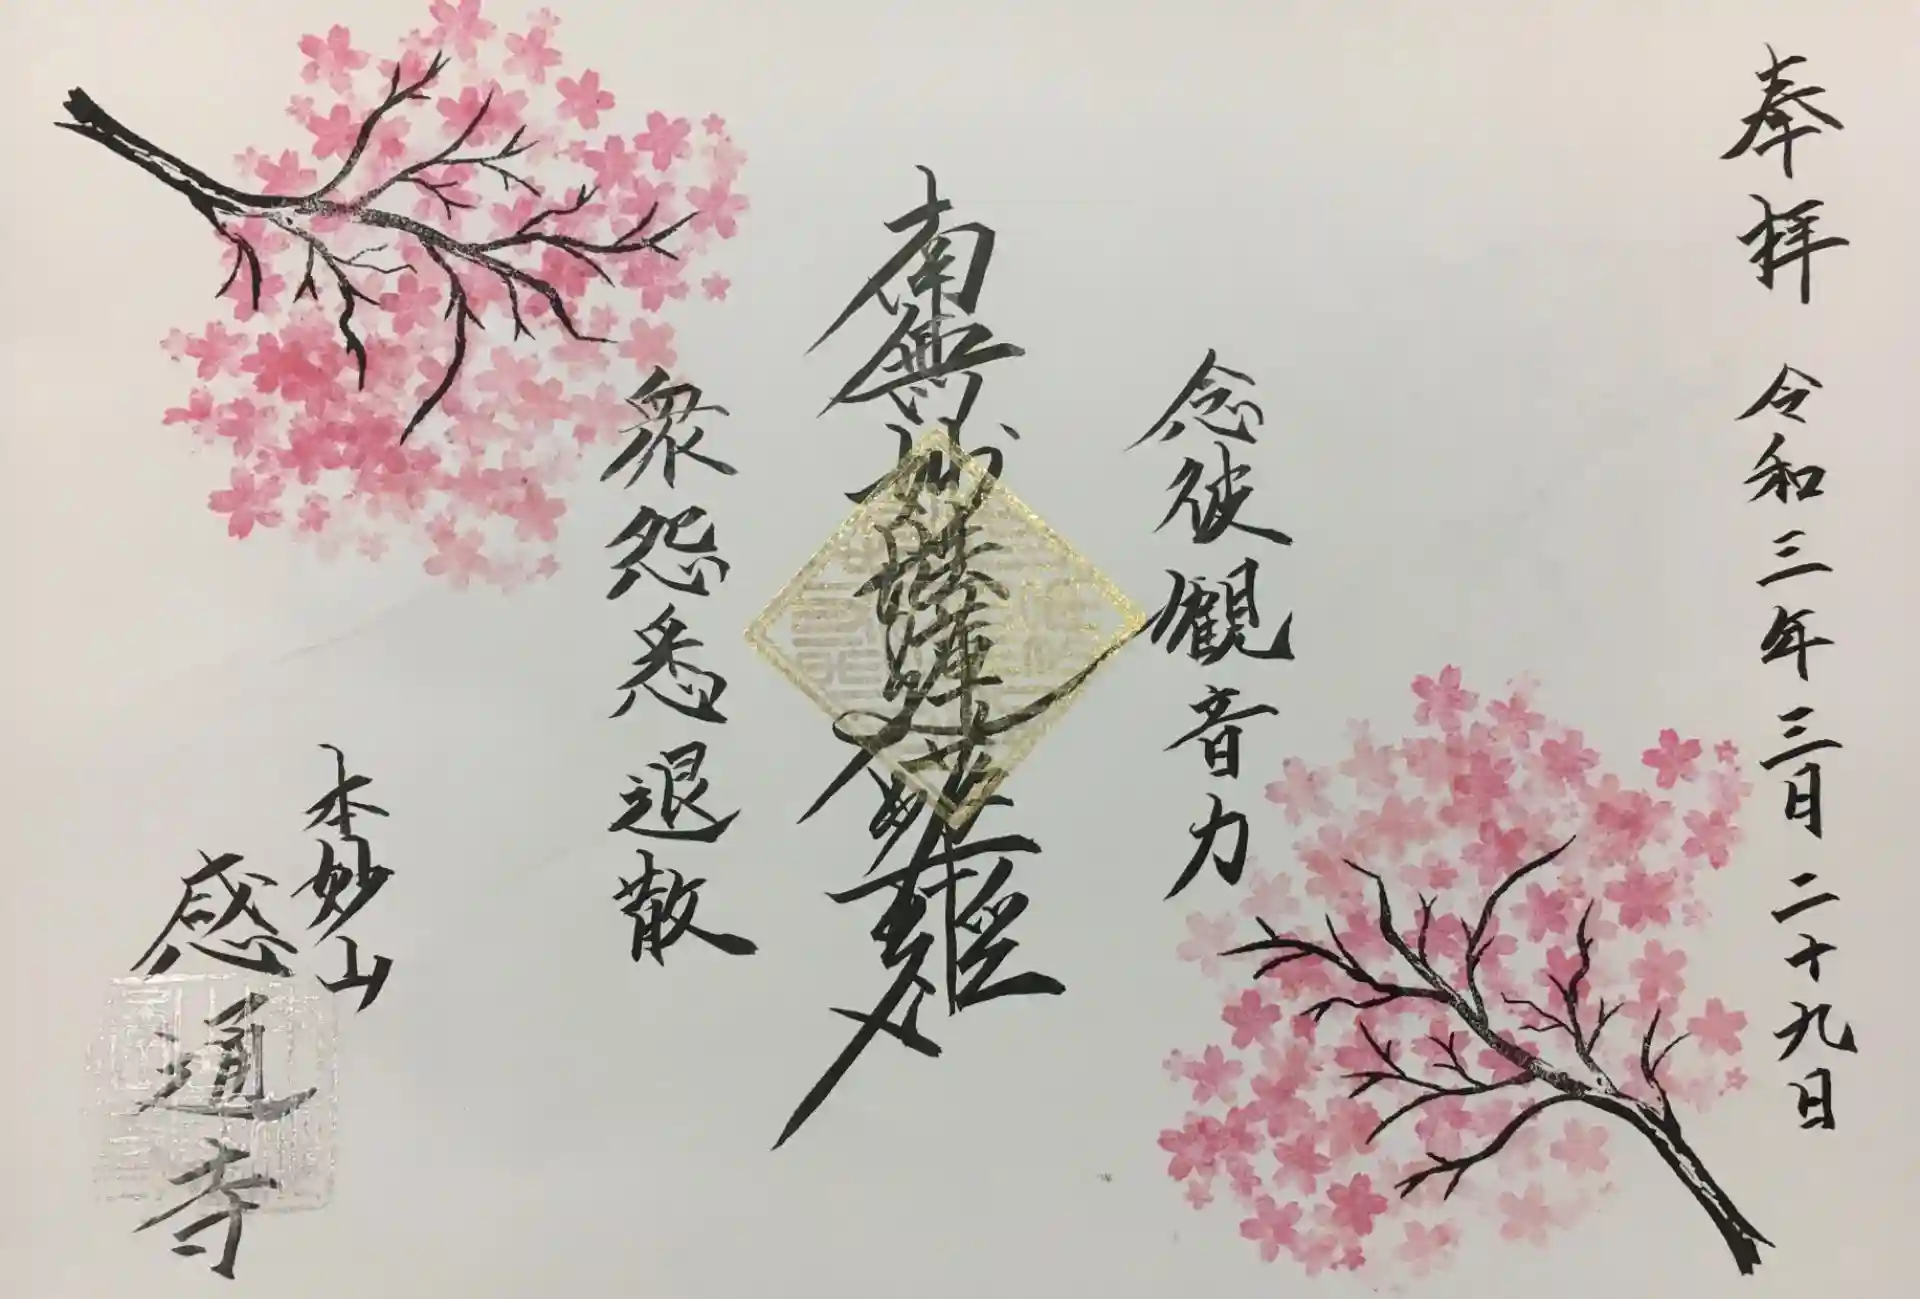 奉拝 令和三年三月二十九日
念彼観音力
南無妙法蓮華経
衆怨悉退散
本妙山
感通寺